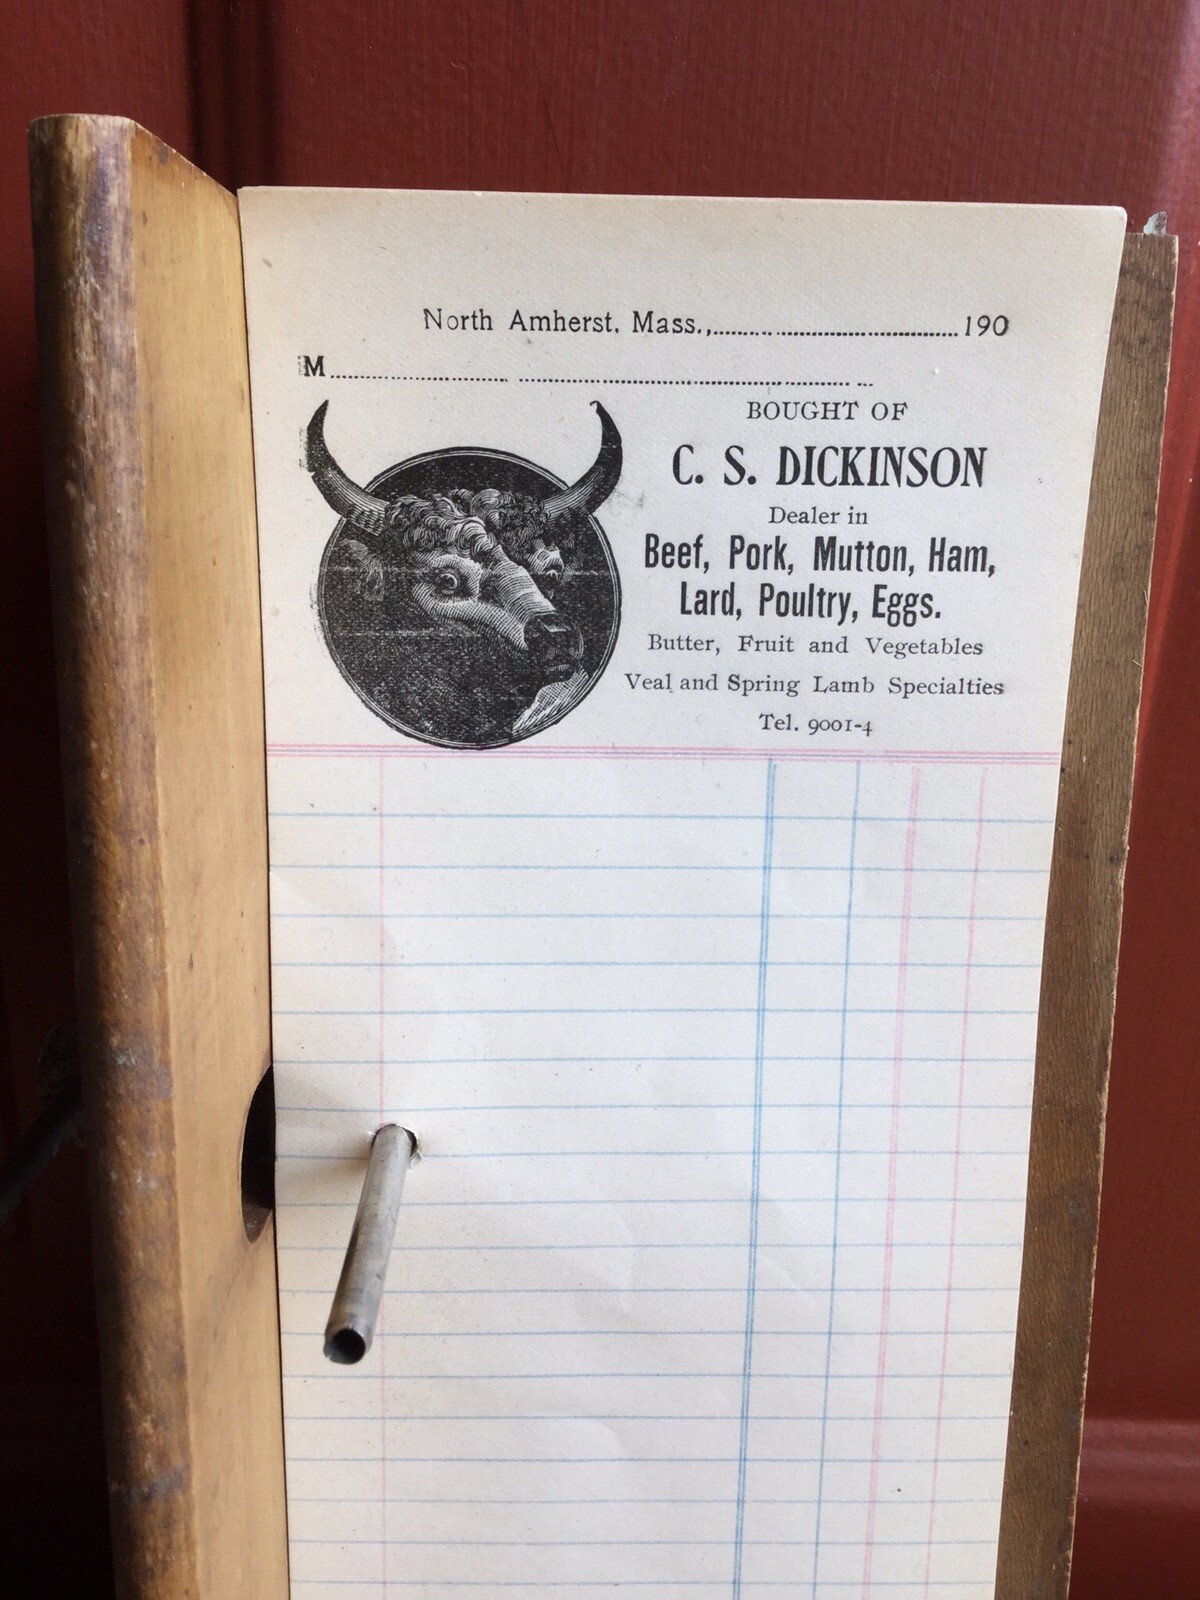 North Amherst, Mass.,..............................190
M..............................
BOUGHT OF
C. S. DICKINSON
Dealer in
Beef, Pork, Mutton, Ham,
Lard, Poultry, Eggs.
Butter, Fruit and Vegetables
Veal and Spring Lamb Specialties
Tel. 9001-4